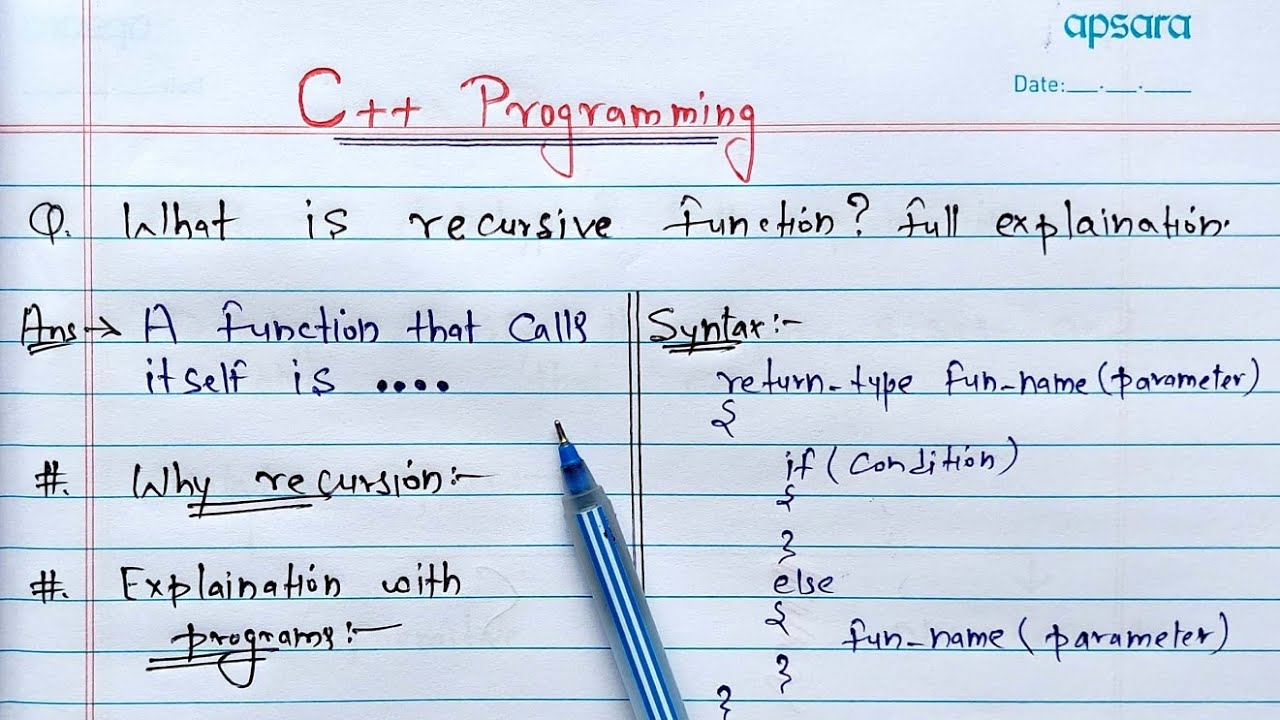 apsara
Date:__.__.__
C++ Programming
Q. What is recursive function? full explaination.
Ans→ A function that calls
itself is ....
#. Why recursion:-
#. Explaination with
programs:-
Syntax:-
return-type fun-name(parameter)
{
if(condition)
{
}
else
{
fun-name(parameter)
}
}